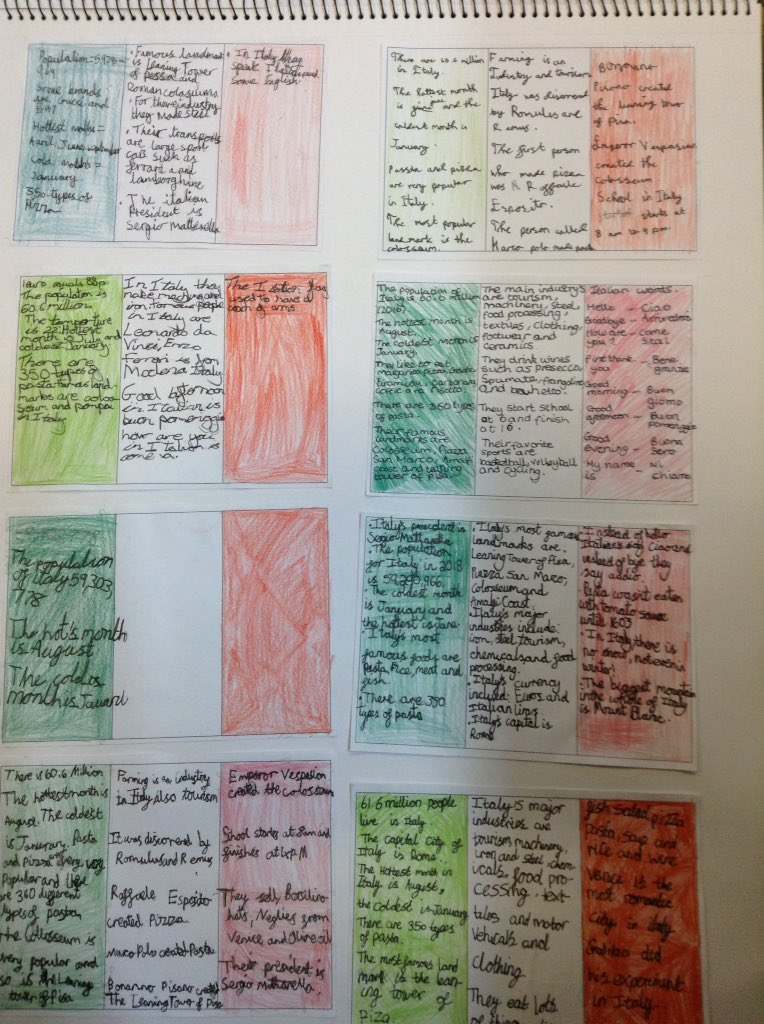 Population=
Some brands
are Gucci and
Hottest moths=
Cold moths=
January
350-types of
Pizza
• Famous landmark
is Leaning Tower
of
Roman colosseum
• For there industry
they made steel
• Their transports
are large sport
cars such as
ferrari and
lamborghine
• The italian
President is
Sergio Mattarella
• In Italy they
speak Italian and
some English
There are 60.6 million
in Italy.
The hottest month
is and the
coldest month is
January.
Passta and pizza
are very popular
in Italy.
The most popular
landmark is the
colosseum.
Farming is an
Industry and tourism
Italy was discovered
by Romulus and
Remus.
The first person
who made pizza
was Raffaele
Esposito.
The person called
Marco polo made pasta
Bonanno
Pisano created
the leaning tower
of Pisa.
Emperor Vespasian
created the
Colosseum
School in Italy
starts at
8 am to 4 pm.
1 euro equals 88p
The population is
60.6 million
The temperture
is Hottest
month is July and
coldest January
There are
350 types of
pasta famous land-
marks are colos-
seum and pompei
in Italy.
In Italy they
make machines and
iron. Famous people
in Italy are
Leonardo da
Vinci, Enzo
Ferrari is from
Modena Italy.
Good afternoon
in Italian is
buon pomeriggio
how are you
in Italian is
come va.
The Italian flag
used to have a
coat of arms
The population of
Italy is 60.6 million
(2016)
The hottest month is
August.
The coldest month is
January.
They like to eat
margarita pizza, pasta
tiramisu, carbonara,
There are 350 types
of pasta.
Their famous
landmarks are
Colosseum, Piazza
San Marco, Amalfi
coast and
tower of pisa.
The main industry's
are tourism,
machinery, Steel,
food processing,
textiles, clothing,
footwear and
ceramics
They drink wines
such as prosecco
Spumate,
and
They start school
at 8 and finish
at 16.
Their favorite
sports are
basketball, volleyball
and cycling.
Italian words.
Hello - Ciao
Goodbye -
How are - come
you? - Stai
Fine thank - Bene
you - grazie
Good
morning - Buon
giorno
Good
afternoon - Buon
pomeriggio
Good - Buona
evening - Sero
My name - Mi
is - chiamo
The population
of Italy 59,303,
778
The hot's month
is August
The coldes
month is Januard
• Italy's president is
Sergio Mattarella
• The population
for Italy in 2018
is 59,290,966.
• The coldest month
is January and
the hottest is June.
• Italy's most
famous foods are
pasta, Rice, meat and
fish.
• There are 350
types of pasta
• Italy's most famous
landmarks are
Leaning Tower of Pisa,
Piazza San Marco,
Colosseum and
Amalfi Coast
• Italy's major
industries include:
iron, steel, tourism,
chemicals and food
processing.
• Italy's currency
included: Euros and
Italian liras
• Italy's capital is
Rome
• Instead of hello
Italian's say Ciao and
instead of bye they
say addio.
Pizza wasn't eaten
with tomato sauce
until 1603
• In Italy there is
no snow, not even in
winter!
• The biggest mountain
in the whole of Italy
is Mount Blanc.
There is 60.6 Million
The hottest month is
August. The coldest
is Janurary. Pasta
and Pizza very, very
Popular and there
are 360 different
types of pasta,
the Colloseum is
very popular and
so is the Leaning
tower of Pisa
Farming is an industry
in Italy also tourism
It was discovered by
Romulus and Remus
Raffaele Esposito
created Pizza
Marco Polo created Pasta
Bonanno Pisano created
The Leaning Tower of Pisa
Emperor Vespasion
created the Colosseum
School starts at 8am and
finishes at 4PM
They sell,
hats, from
Venice and Olive oil
Their president is
Sergio Mattarella.
61.6 million people
live in Italy
The capital City of
Italy is Rome.
The Hottest month in
Italy is August,
the Coldest is January
There are 350 types
of Pasta.
The most famous land
mark is the lean-
ing tower of
Piza
Italy's major
industries are
tourism, machinery,
iron and steel, chem-
icals, food pro-
cessing, text-
tales and motor
Vehicals and
Clothing
They eat lots
of
fish salad, pizza
pasta,
rice and wine
Venice is the
most romantic
City in italy
Galileo did
his experiment
in Italy.